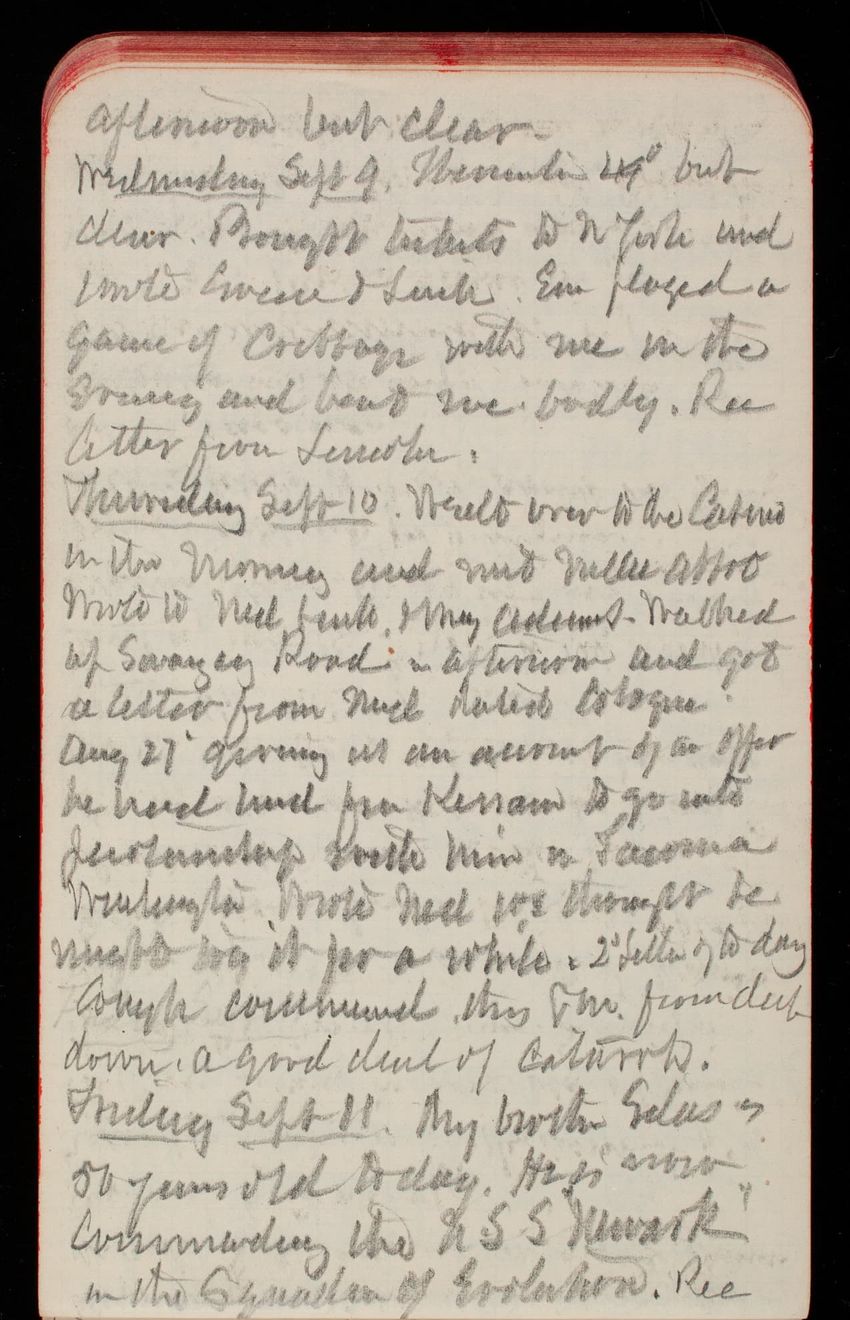 afternoon but clear.
Wednesday Sept 9. Thermometer 49° but
clear. Bought tickets to N York and
wrote Greene & Link. Em played a
game of Cribbage with me in the
Evening and beat me badly. Rec
letter from Lincoln.
Thursday Sept 10. Went over to the Casino
in the morning and met Nellie Abbot
Wrote to Ned, & May Adams. Walked
up Swanzey Road in afternoon and got
a letter from Ned dated Cologne
Aug 27 giving us an account of an offer
he had had from to go into
partnership with him in Tacoma
Washington. Wrote Ned we thought he
might try it for a while. 2d letter of to day
Cough commenced this P.M. from deep
down. a good deal of Catarrh.
Friday Sept 11. My brother Silas is
50 years old to day. He is now
Commanding the U.S.S "Newark"
in the Squadron of Evolution. Rec